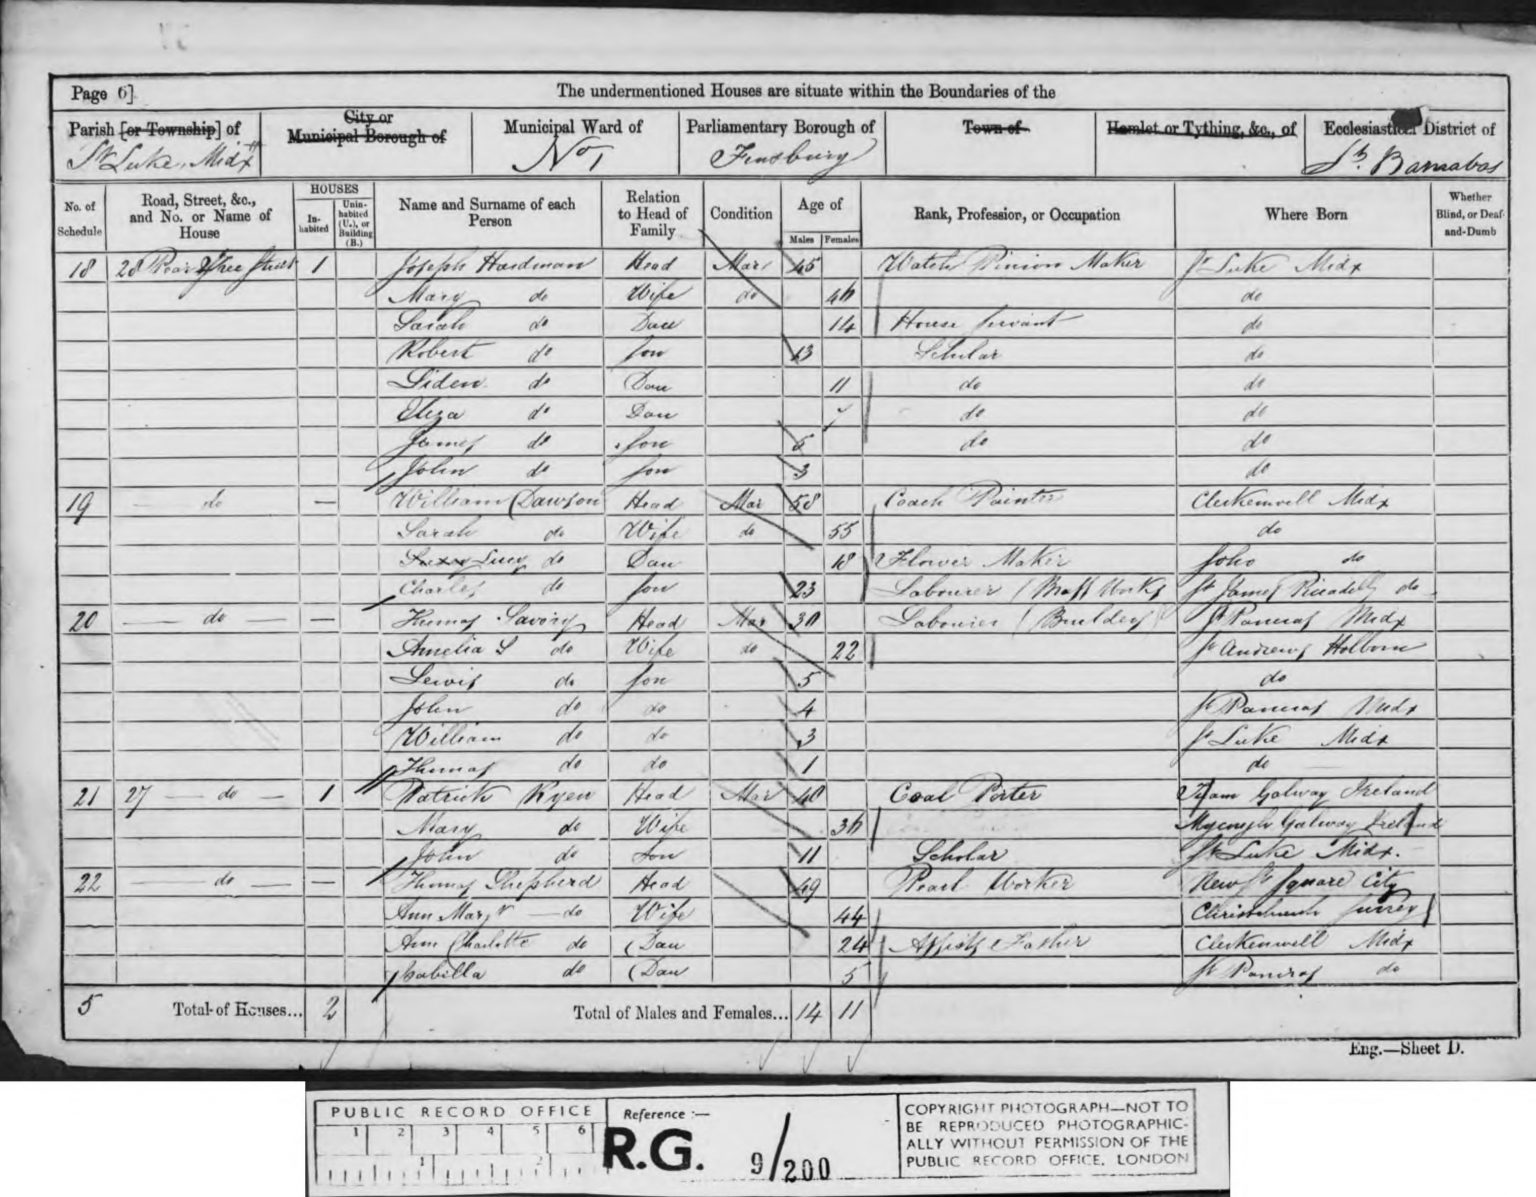 Page 6]
The undermentioned Houses are situate within the Boundaries of the
Parish [or Township] of
St Luke, Midx
City or
Municipal Borough of
Municipal Ward of
No 1
Parliamentary Borough of
Finsbury
Town of
Hamlet or Tything, &c., of
Ecclesiastical District of
St. Barnabas
No. of Schedule
Road, Street, &c., and No. or Name of House
HOUSES
In-habited
Unin-habited (U.), or Building (B.)
Name and Surname of each Person
Relation to Head of Family
Condition
Age of
Males
Females
Rank, Profession, or Occupation
Where Born
Whether Blind, or Deaf-and-Dumb
18 28 Street 1 Joseph Hardman Head Mar 45 Watch Pinion Maker St Luke Midx
Mary do Wife do 46 do
Sarah do Dau 14 House Servant do
Robert do Son 13 Scholar do
do Dau 11 do do
Eliza do Dau 7 do do
James do Son 5 do do
John do Son 3 do
19 — do — William Dawson Head Mar 58 Coach Painter Clerkenwell Midx
Sarah do Wife do 55 do
Lucy do Dau 18 Flower Maker Soho do
Charles do Son 23 Labourer (Brass Works St James Piccadilly do
20 — do — — Thomas Savory Head Mar 30 Labourer (Builders) St Pancras Midx
Amelia S do Wife do 22 St Andrews Holborn
Lewis do Son 5 do
John do do 4 St Pancras Midx
William do do 3 St Luke Midx
Thomas do do 1 do
21 27 — do — 1 Patrick Ryen Head Mar 40 Coal Porter Galway Ireland
Mary do Wife 36 Galway Ireland
John do Son 11 Scholar St Luke Midx.
22 — do — — Thomas Shepherd Head 49 Pearl Worker New St Square City
Ann Marg't — do Wife 44 Christchurch Surrey
Ann Charlotte do Dau 24 Assists Father Clerkenwell Midx
Isabilla do Dau 5 St Pancras do
5 Total of Houses... 2 Total of Males and Females... 14 11
Eng.—Sheet D.
PUBLIC RECORD OFFICE
1 2 3 4 5 6
1 2
Reference :—
R.G. 9/200
COPYRIGHT PHOTOGRAPH—NOT TO
BE REPRODUCED PHOTOGRAPHIC-
ALLY WITHOUT PERMISSION OF THE
PUBLIC RECORD OFFICE, LONDON